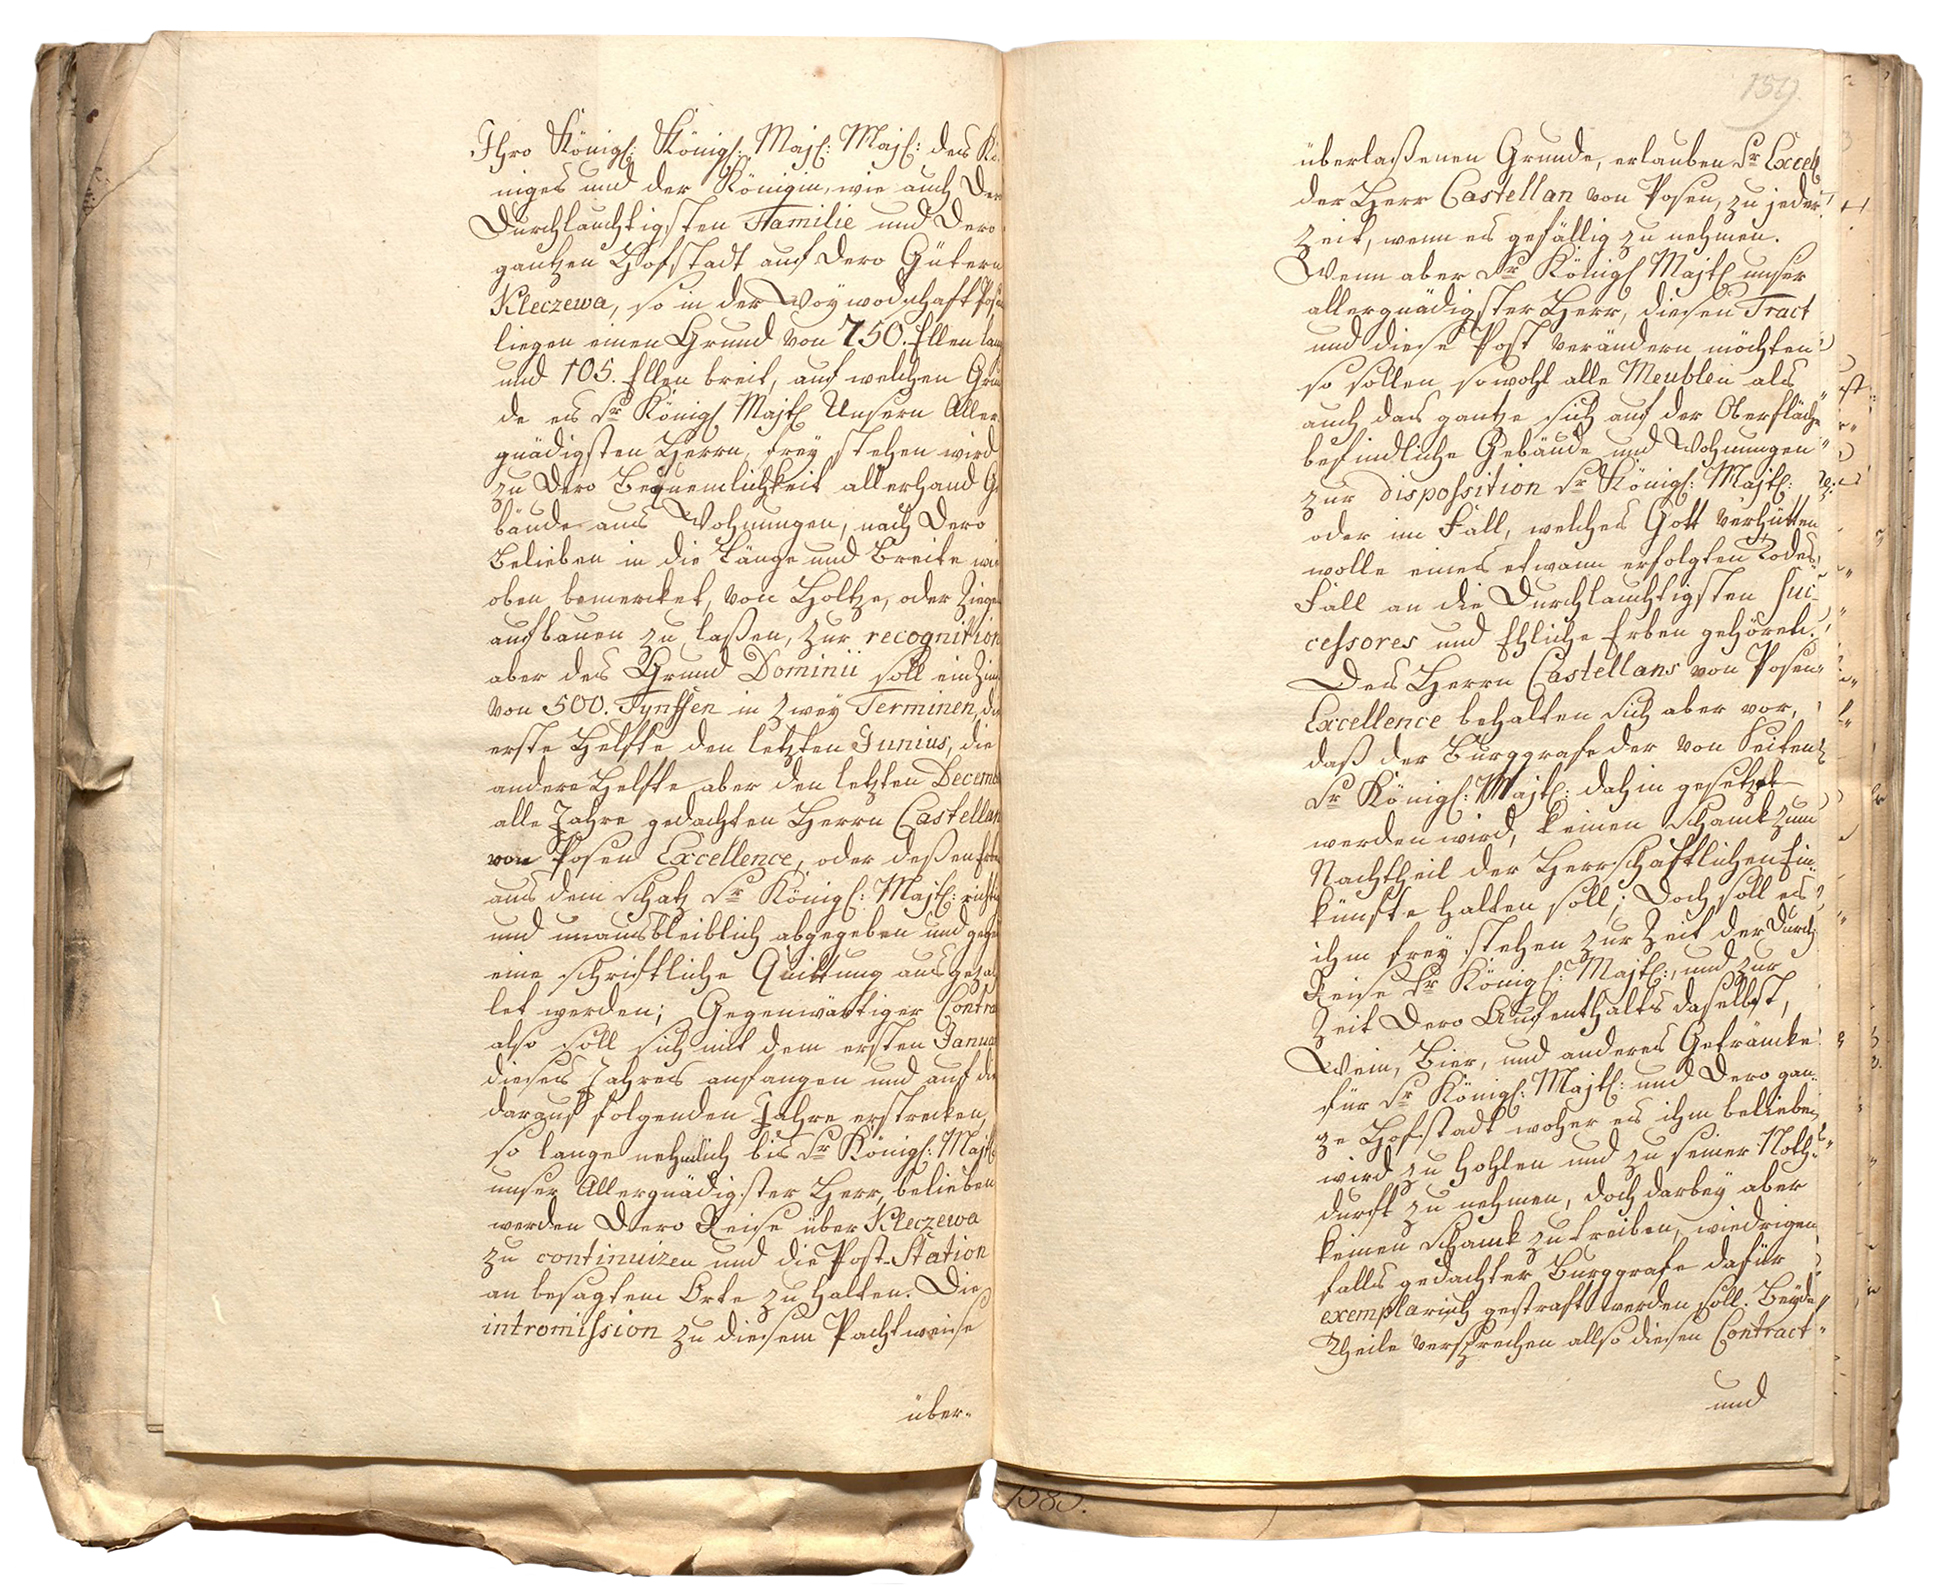 Ihro Königl: Königl: Majt: Majt: des Kö
niges und der Königin, wie auch Der
Durchlauchtigsten Familie und Dero
gantzen Hofstadt auf Dero Gütern
Kleczewa, so in der Woÿwodschaft Pos
liegen einen Grund von 750. Ellen lan
und 105. Ellen breit, auf welchen Gru
de es Sr Königl Majtt Unsern Aller
gnädigsten Herrn, freÿ stehen wird
zu Dero Bequemlichkeit allerhand G
bäude aus Wohnungen, nach Dero
Belieben in die Länge und Breite wie
oben bemercket, von Holtze, oder Ziege
aufbauen zu laßen, zur recognition
aber des Grund Dominii soll ein Zin
von 500. Tynffen in zweÿ Terminen, die
erste Helfte den letzten Junius, die
andere Helfte aber den letzten Decemb
alle Jahre gedachten Herrn Castellan
von Posen Excellence, oder deßen Erb
aus dem Schatz Sr Königl: Majtt: richti
und unausbleiblich abgegeben und gege
eine schriftliche Quittung ausgezah
let werden; Gegenwärtiger Contra
also soll sich mit dem ersten Janua
dieses Jahres anfangen und auf die
darauf folgenden Jahre erstrecken,
so lange nehmlich bis Sr Königl: Majtt
unser Allergnädigster Herr, belieben
werden Dero Reise über Kleczewa
zu continuiren und die Post-Station
an besagtem Orte zu halten. Die
intromission zu diesem Pachtweise
über-
159.
überlaßenen Grunde, erlauben Sr Excell
der Herr Castellan von Posen, zu jeder
Zeit, wenn es gefällig zu nehmen.
Wenn aber Sr Königl Majtt unser
allergnädigster Herr, diesen Tract
und diese Post verändern möchten
so sollen sowohl alle Meublen als
auch das gantze sich auf der Oberfläche
befindliche Gebäude und Wohnungen
zur disposition Sr Königl: Majtt:
oder im Fall, welches Gott verhütten
wolle eines etwann erfolgten Todes-
Fall an die Durchlauchtigsten Suc-
cessores und Ehliche Erben gehören.
Des Herrn Castellans von Posen
Excellence behalten sich aber vor,
daß der Burggrafe der von Seiten
Sr Königl: Majtt: dahin gesetzet
werden wird, keinen Schanck zum
Nachtheil der Herrschaftlichen Ein-
künfte halten soll; Doch soll es
ihm freÿ stehen zur Zeit der Durch
Reise Sr Königl: Majtt:, und zur
Zeit Dero Aufenthalts daselbst,
Wein, Bier, und anderes Getränke
für Sr Königl: Majtt: und Dero gan-
ze Hofstadt woher es ihm belieben
wird zu hohlen und zu seiner Noth-
durft zu nehmen, doch darbeÿ aber
keinen Schanck zu treiben, wiedrigen
falls gedachter Burggrafe dafür
exemplarisch gestraft werden soll. Beÿde
Theile versprechen allso diesen Contract
und
1383.